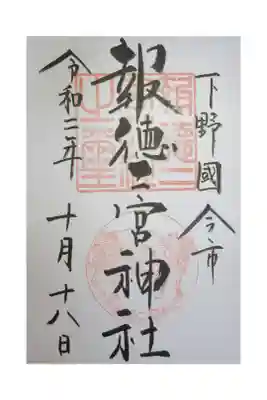 下野國 今市
報徳二宮神社
令和二年 十月十八日